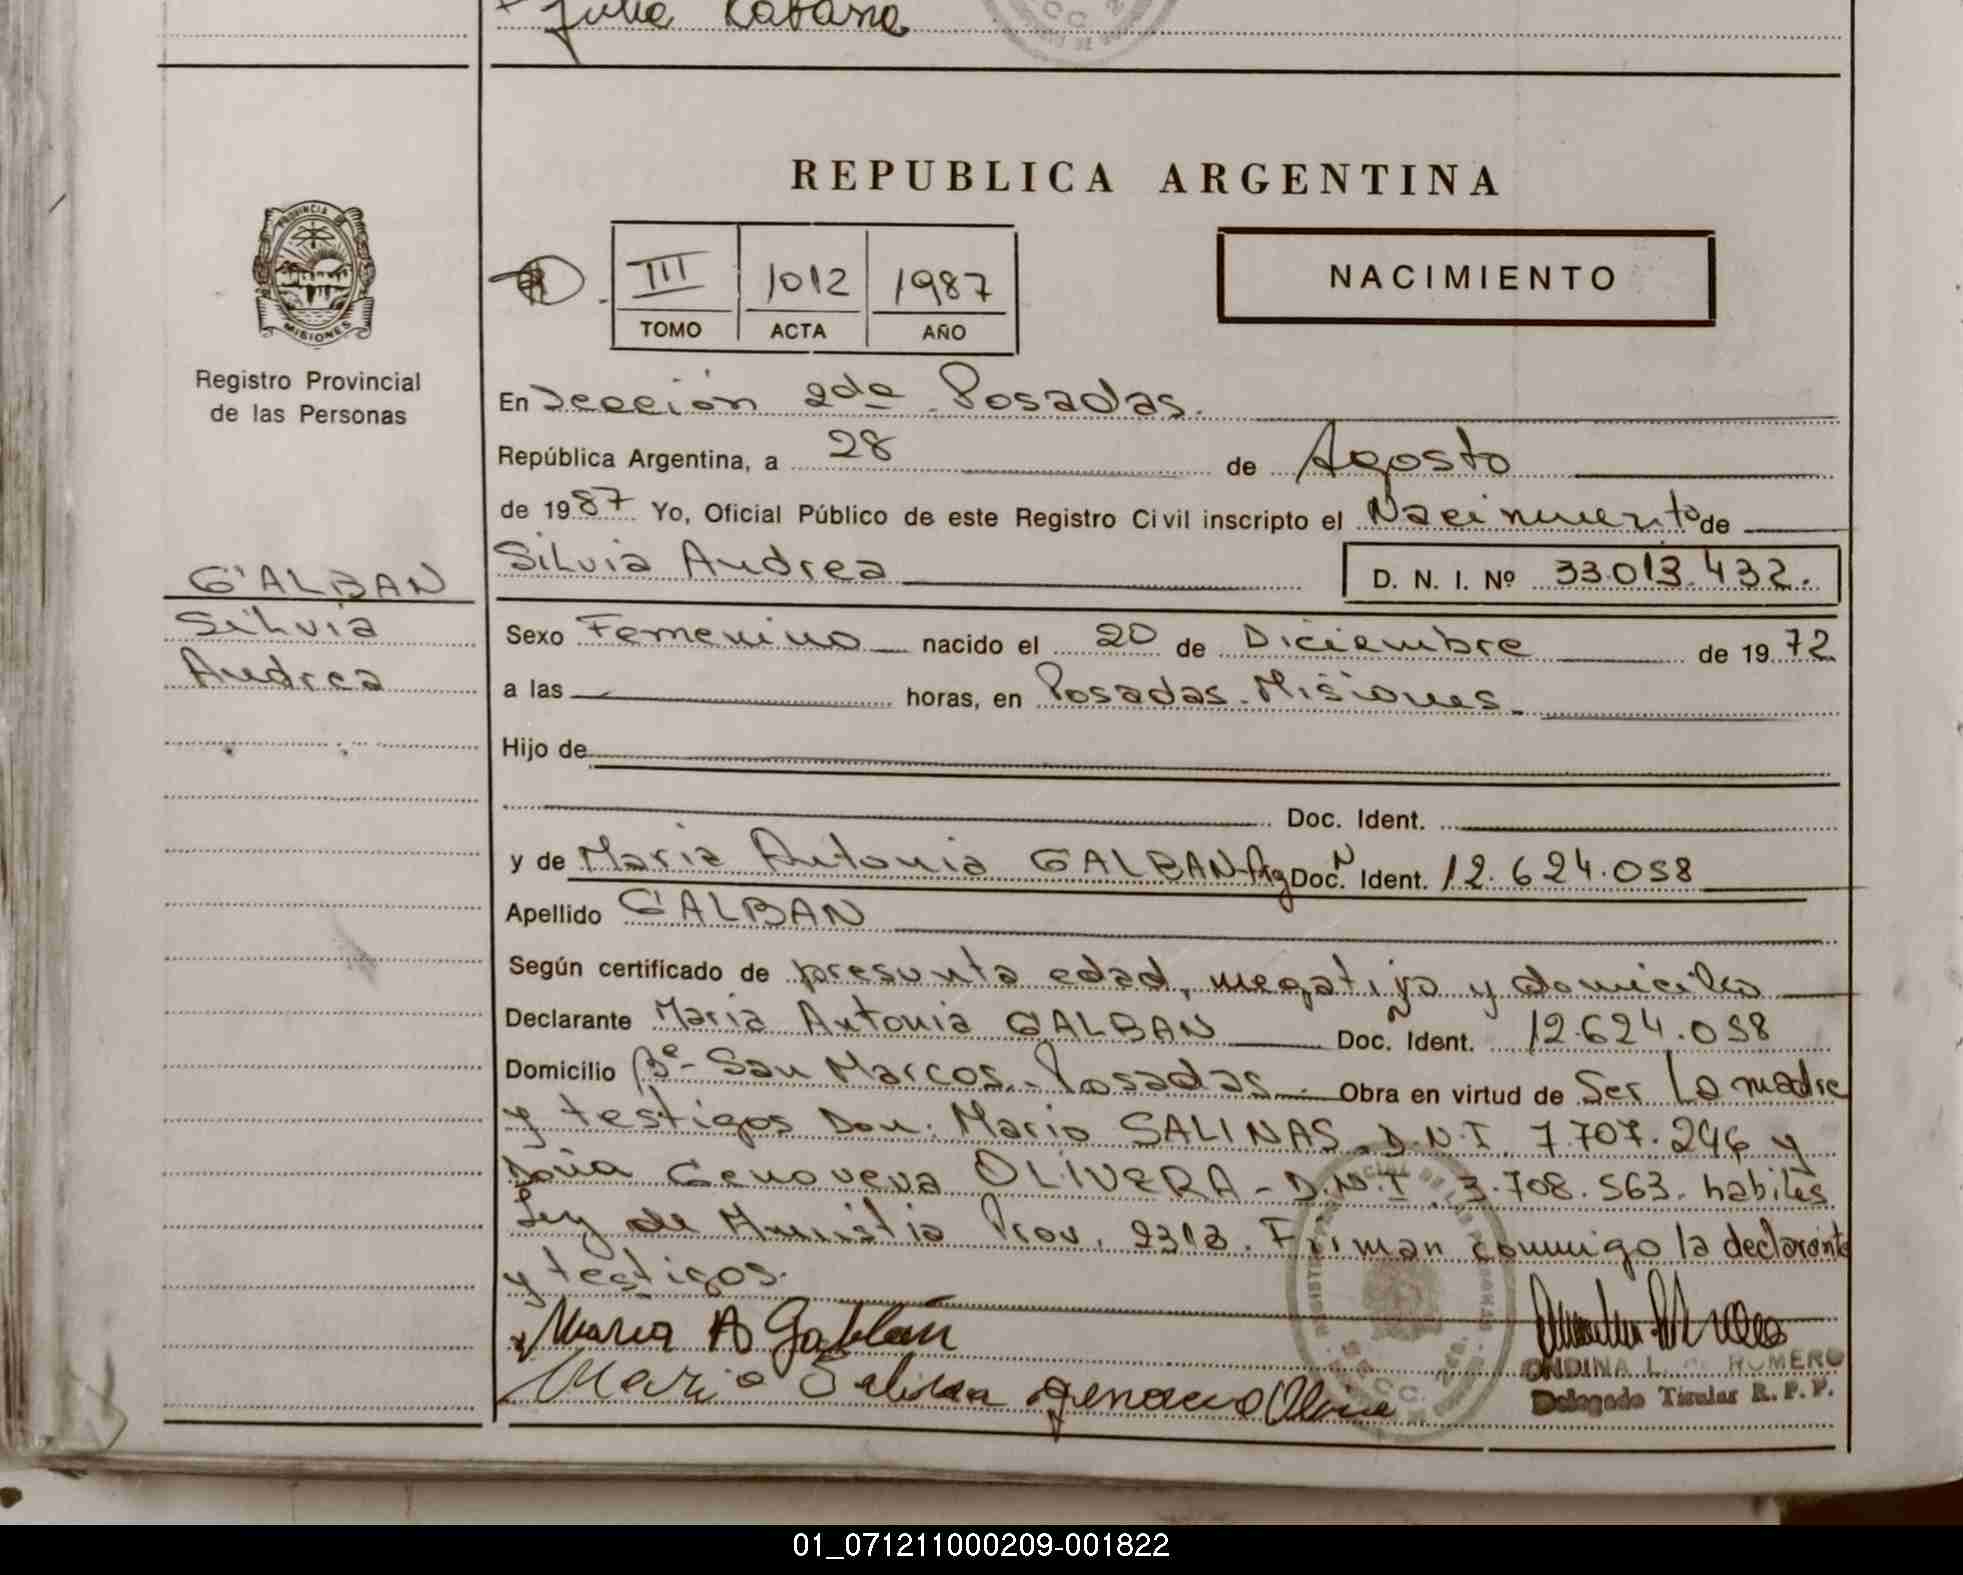 Julia
REPUBLICA ARGENTINA
PROVINCIA DE
MISIONES
Registro Provincial
de las Personas
III 1012 1987
TOMO ACTA AÑO
NACIMIENTO
En Sección 2da Posadas.
República Argentina, a 28 de Agosto
de 1987 Yo, Oficial Público de este Registro Civil inscripto el Nacimiento de
Silvia Andrea D. N. I. Nº 33.013.432.
GALBAN
Silvia
Andrea
Sexo Femenino nacido el 20 de Diciembre de 1972
a las horas, en Posadas. Misiones.
Hijo de
Doc. Ident.
y de Maria Antonia GALBAN-Arg Doc. N Ident. 12.624.058
Apellido GALBAN
Según certificado de presunta edad, negativo y domicilio
Declarante Maria Antonia GALBAN Doc. N Ident. 12.624.058
Domicilio Bº- San Marcos. Posadas. Obra en virtud de Ser La madre
y testigos Don. Mario SALINAS. D.N.I. 7.707.246 y
Doña Genoveva OLIVERA - D.N.I. 3.708.563. habiles
Ley de Amnistia Prov. 2313. Firman conmigo la declarante
y testigos.
Maria A Galbán
Mario Salinas
ONDINA L. DE ROMERO
Delegado Titular R. P. P.
01_071211000209-001822